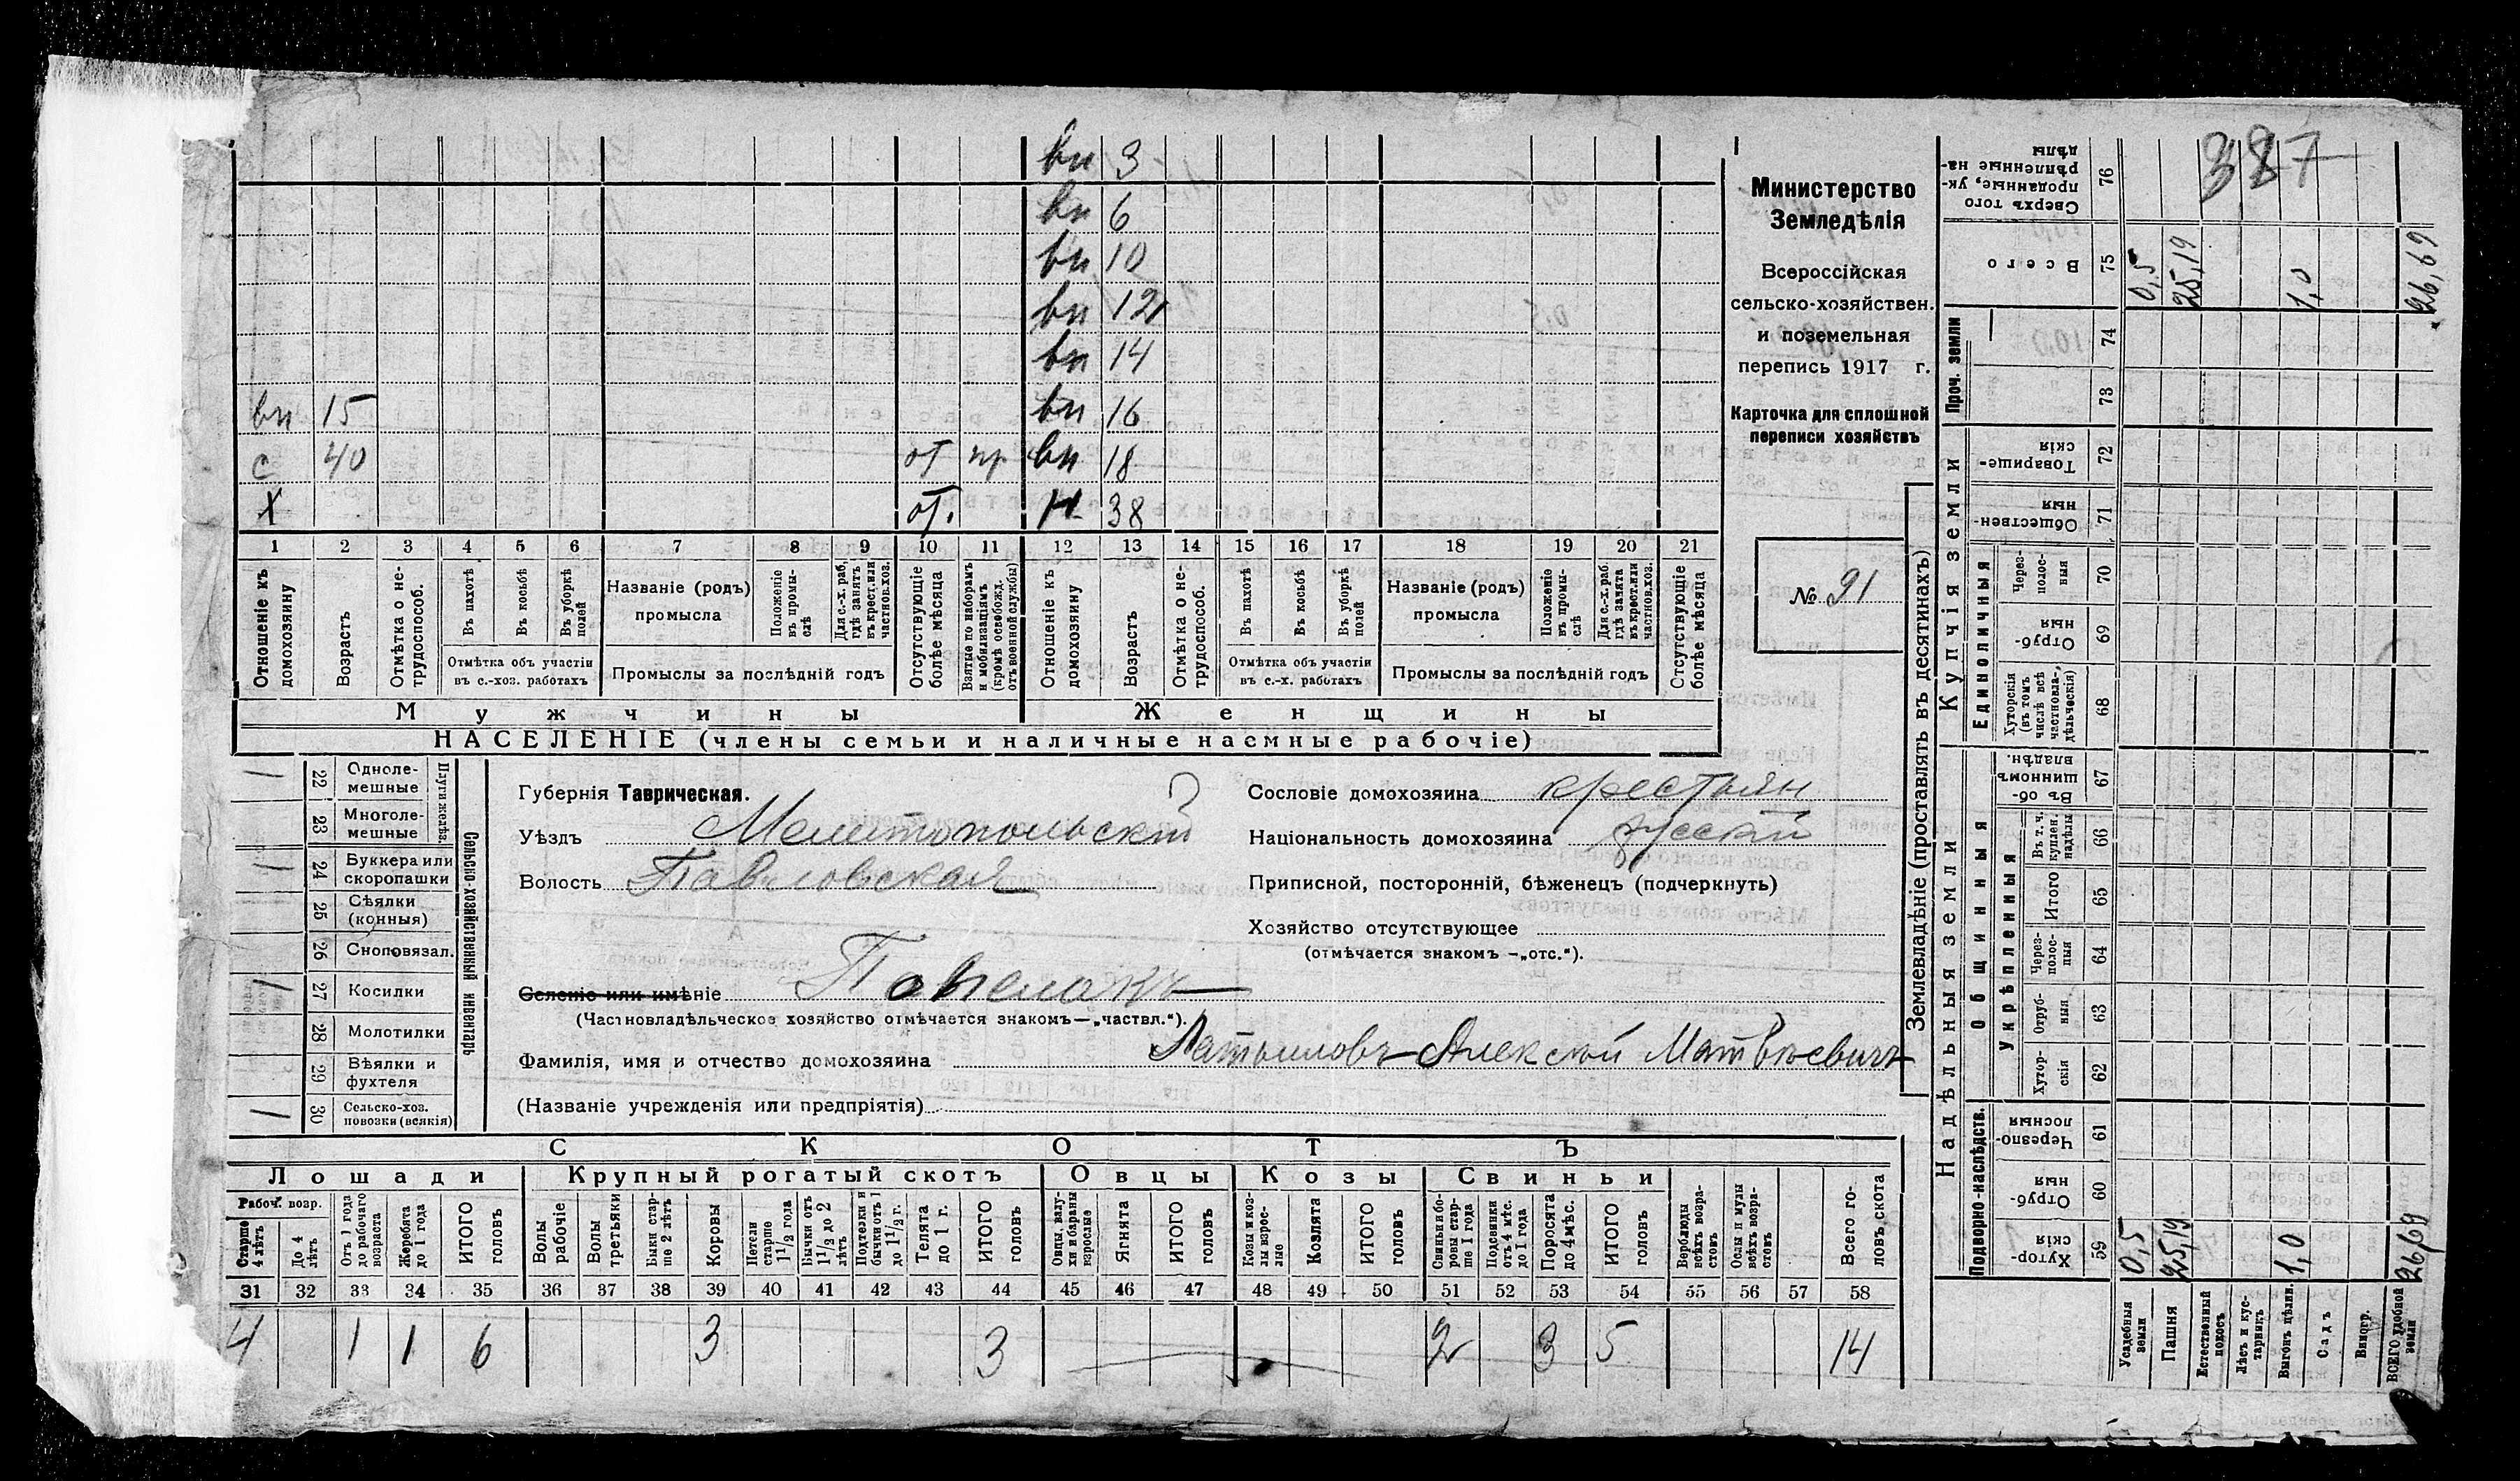 387
вн 3
вн 6
вн 10
вн 12
вн 14
вн 15 вн 16
с 40 от пр вн 18
х от. н 38
1 2 3 4 5 6 7 8 9 10 11 12 13 14 15 16 17 18 19 20 21
Отношеніе къ домохозяину
Возрастъ
Отмѣтка о не-трудоспособ.
Въ пахотѣ
Въ косьбѣ
Въ уборкѣ полей
Отмѣтка объ участіи въ с.-хоз. работахъ
Названіе (родъ) промысла
Положеніе въ промы-слѣ
Для с.-х. раб. гдѣ занятъ въ крест. или частнов. хоз.
Промыслы за послѣдній годъ
Отсутствующіе болѣе мѣсяца
Взятые по наборамъ и мобилизаціямъ (кромѣ освобожд. отъ военной службы)
Отношеніе къ домохозяину
Возрастъ
Отмѣтка о не-трудоспособ.
Въ пахотѣ
Въ косьбѣ
Въ уборкѣ полей
Отмѣтка объ участіи въ с.-х. работахъ
Названіе (родъ) промысла
Положеніе въ промы-слѣ
Для с.-х. раб. гдѣ занята въ крест. или частнов. хоз.
Промыслы за послѣдній годъ
Отсутствующіе болѣе мѣсяца
Мужчины Женщины
НАСЕЛЕНІЕ (члены семьи и наличные наемные рабочіе)
Министерство
Земледѣлія
Всероссійская
сельско-хозяйствен.
и поземельная
перепись 1917 г.
Карточка для сплошной
переписи хозяйствъ
№ 91
Сельско-хозяйственный инвентарь
Плуги желѣз.
22 Одноле-мешные
23 Многоле-мешные
24 Буккера или скоропашки
25 Сѣялки (конныя)
26 Сноповязал.
27 Косилки
28 Молотилки
29 Вѣялки и фухтеля
30 Сельско-хоз. повозки (всякія)
Губернія Таврическая.
Уѣздъ Мелитопольскій
Волость Павловская
Селеніе или имѣніе
(Частновладѣльческое хозяйство отмѣчается знакомъ—„частвл.“).
Фамилія, имя и отчество домохозяина Латышловъ Алексѣй Матвѣевичъ
(Названіе учрежденія или предпріятія)
Сословіе домохозяина крестьян
Національность домохозяина русскій
Приписной, посторонній, бѣженец (подчеркнуть)
Хозяйство отсутствующее
(отмѣчается знакомъ —„отс.“).
СКОТЪ
Лошади Крупный рогатый скотъ Овцы Козы Свиньи
Рабоч. возр.
Старше 4 лѣтъ
До 4 лѣтъ
Отъ 1 года до рабочаго возраста
Жеребята до 1 года
ИТОГО головъ
Волы рабочіе
Волы третьяки
Быки стар-ше 2 лѣтъ
Коровы
Нетели старше 1 1/2 года
Бычки отъ 1 1/2 до 2 лѣтъ
Подтелки и бычки отъ 1 до 1 1/2 г.
Телята до 1 г.
ИТОГО головъ
Овцы, валу-хи и бараны взрослые
Ягнята
ИТОГО головъ
Козы и коз-лы взрос-лые
Козлята
ИТОГО головъ
Свиньи и бо-ровы стар-ше 1 года
Подсвинки отъ 4 мѣс. до 1 года
Поросята до 4 мѣс.
ИТОГО головъ
Верблюды всѣхъ возра-стовъ
Ослы и мулы всѣхъ возра-стовъ
Всего го-ловъ скота
31 32 33 34 35 36 37 38 39 40 41 42 43 44 45 46 47 48 49 50 51 52 53 54 55 56 57 58
4 1 1 6 3 3 2 3 5 14
Землевладѣніе (проставлять въ десятинахъ)
Надѣльныя земли
Купчія земли
Проч. земли
Подворно-наслѣдств.
Общинныя
Укрѣпленныя
Единоличныя
59 Хутор-скія
60 Отруб-ныя
61 Черезпо-лосныя
62 Хутор-скія
63 Отруб-ныя
64 Через-полос-ныя
65 Итого
66 Въ т. ч. куплен. надѣлы
67 Въ об-щинномъ владѣн.
68 Хуторскія (въ томъ числѣ всѣ частновла-дѣльческія)
69 Отруб-ныя
70 Через-полос-ныя
71 Обществен-ныя
72 Товарище-скія
73
74
75 Всего
76 Сверхъ того проданные, ук-рѣпленные на-дѣлы
Усадебныя земли 0,5 0,5
Пашня 25,19 25,19
Естественный покосъ
Лѣсъ и кус-тарникъ
Выгонъ цѣлин. 1,0 1,0
Садъ
Виногр.
ВСЕГО удобной земли 26,69 26,69